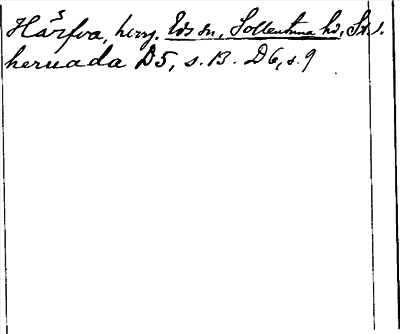 Härfva, herrg. Eds sn, Sollentuna hd, St. l.
heruada D5, s. 13. D6, s. 9